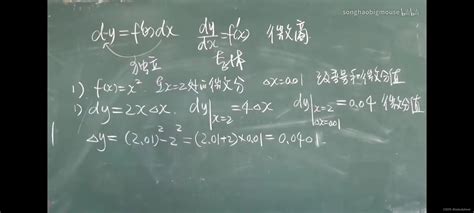 songhaobigmouse
dy=f'(x)dx dy/dx=f'(x) 微商
独立 整体
1) f(x)=x² 在x=2处的微分 Δx=0.01 改变量和微分值
1) dy=2xΔx. dy|x=2 =4Δx dy|x=2 Δx=0.01 =0.04 微分值
Δy=(2.01)²-2²=(2.01+2)×0.01=0.0401